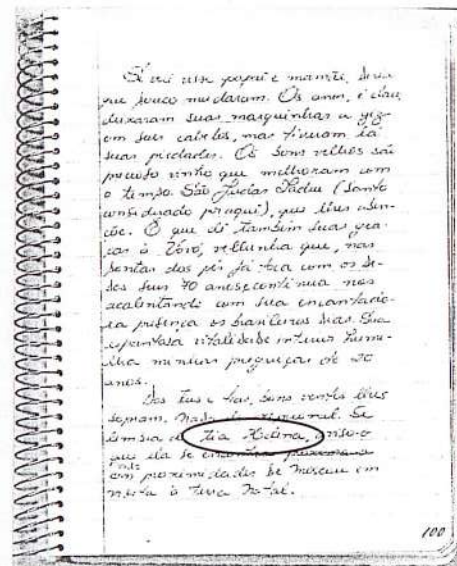 Se
que pouco mudaram. Os anos, é claro,
deixaram suas marquinhas a giz
em seus cabelos, mas tiveram lá
suas piedades. Os bons velhos são
vinho que melhoram com
o tempo. São Judas Tadeu (santo
por aqui), que lhes
. O que dê também suas gra-
ças à Vovó, velhinha que, nas
pontas dos pés já toca com os de-
dos seus 70 anos e continua nos
acalentando com sua encantado-
ra presença os brasileiros dias. Sua
espantosa vitalidade
minhas preguiças de 20
anos.
Dos tios e tias, bons ventos lhes
sopram. Nada de
tia Helena,
que ela se encontra
em proximidades de Moscou em
visita à terra Natal.
100